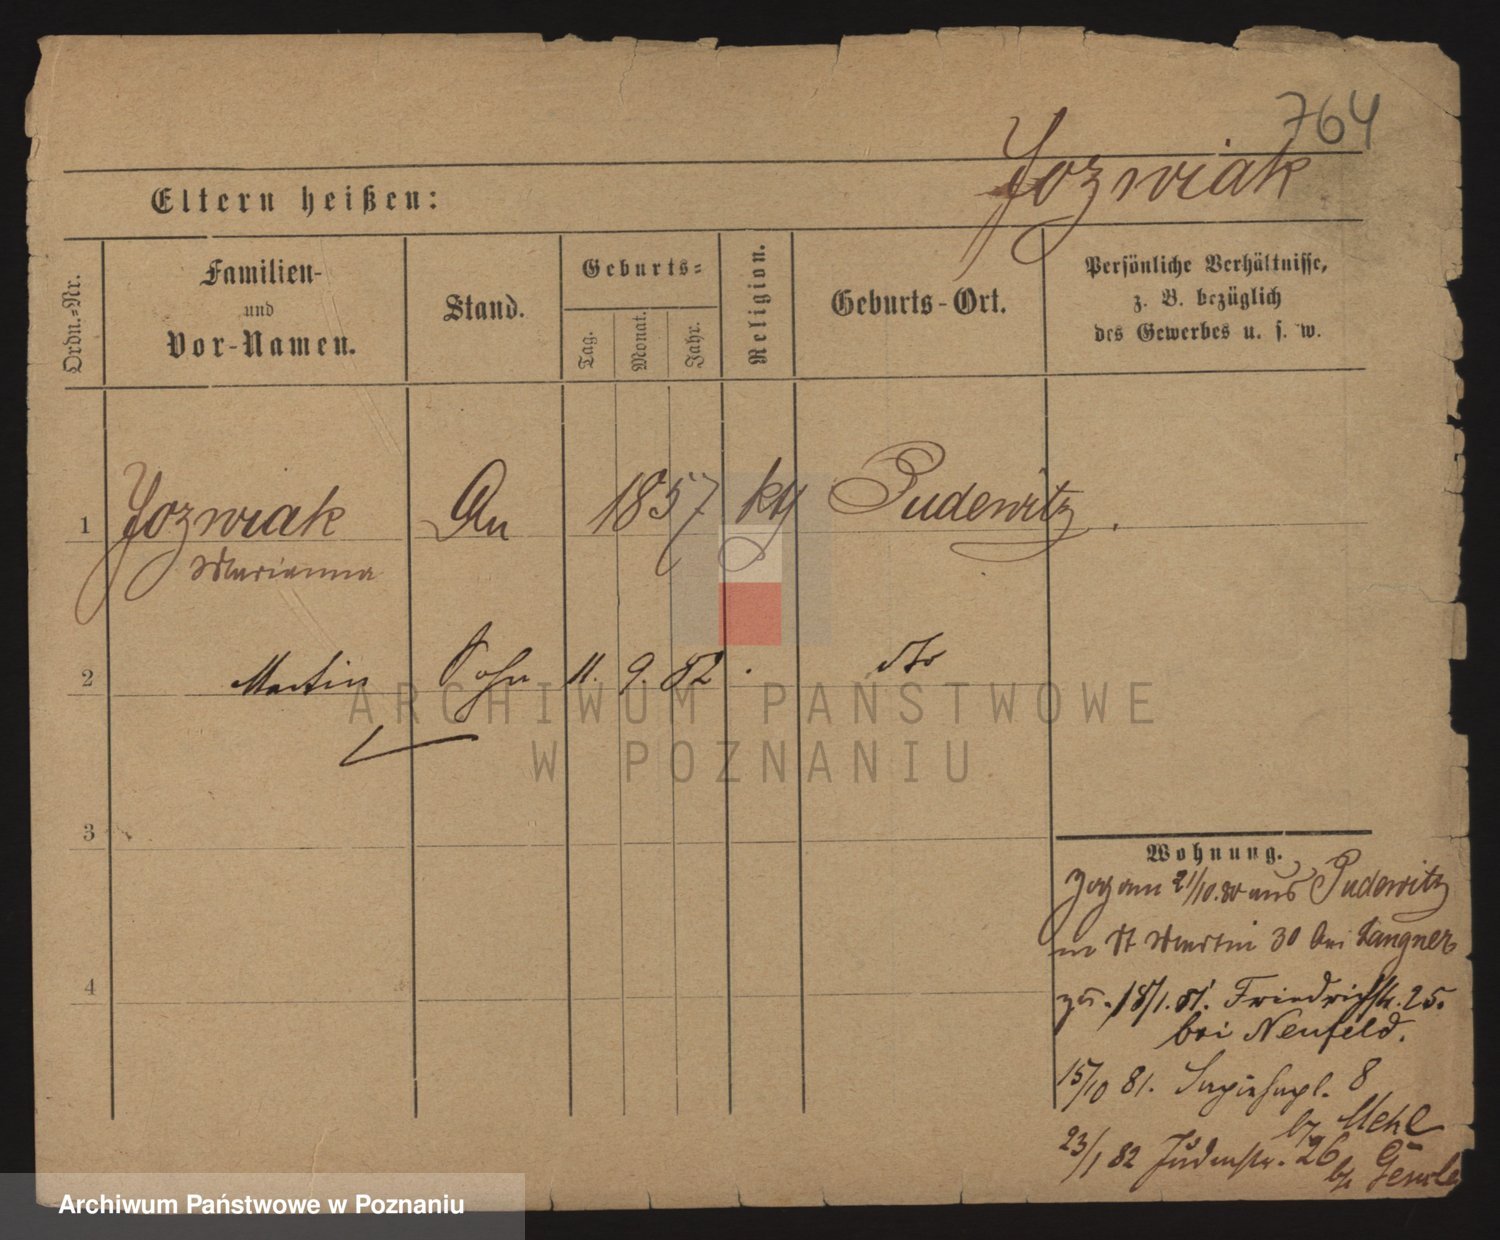 764
Jozwiak
Eltern heißen:
Ordn.-Nr.
Familien-
und
Vor-Namen.
Stand.
Geburts-
Tag.
Monat.
Jahr.
Religion.
Geburts-Ort.
Persönliche Verhältnisse,
z. B. bezüglich
des Gewerbes u. s. w.
1 Jozwiak 1857 kth Pudewitz.
Marianna
2 Martin Sohn 11. 9. 82 dto
ARCHIWUM PAŃSTWOWE
W POZNANIU
3
4
Wohnung.
Zog am 21/10.80 aus Pudewitz
n St Martin 30 bei Langner
zu. 18/1.81. Friedrichstr. 25.
bei Neufeld.
15/10 81. Sapiehapl. 8
by Mehl
23/1 82 Judenstr. 26
Archiwum Państwowe w Poznaniu